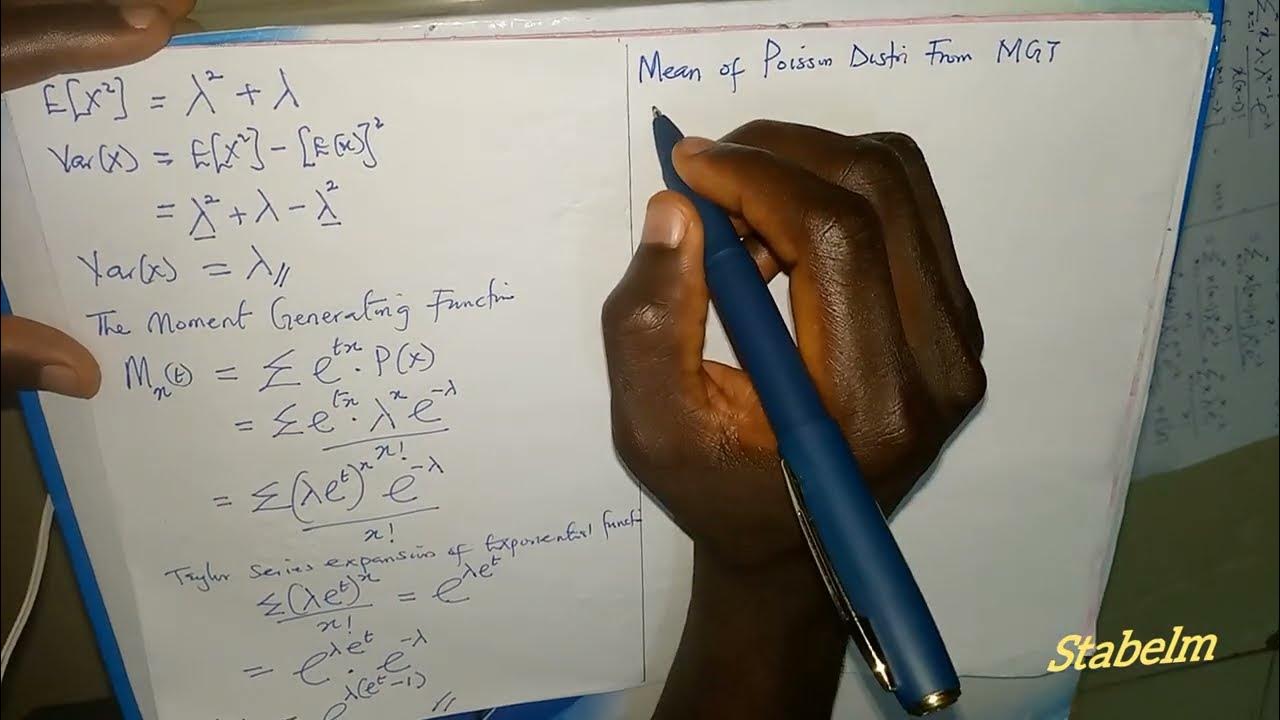 E[X²] = λ² + λ
Var(X) = E[X²] - [E(x)]²
= λ² + λ - λ²
Var(x) = λ //
The Moment Generating Functi
Mₓ(t) = Σ e^{tx} · P(x)
= Σ e^{tx} · λ^x e^{-λ} / x!
= Σ (λe^t)^x e^{-λ} / x!
Taylor Series expansion of Exponential functi
Σ (λe^t)^x / x! = e^{λe^t}
= e^{λe^t} · e^{-λ}
= e^{λ(e^t-1)} //
Mean of Poisson Distri From MGT
Stabelm